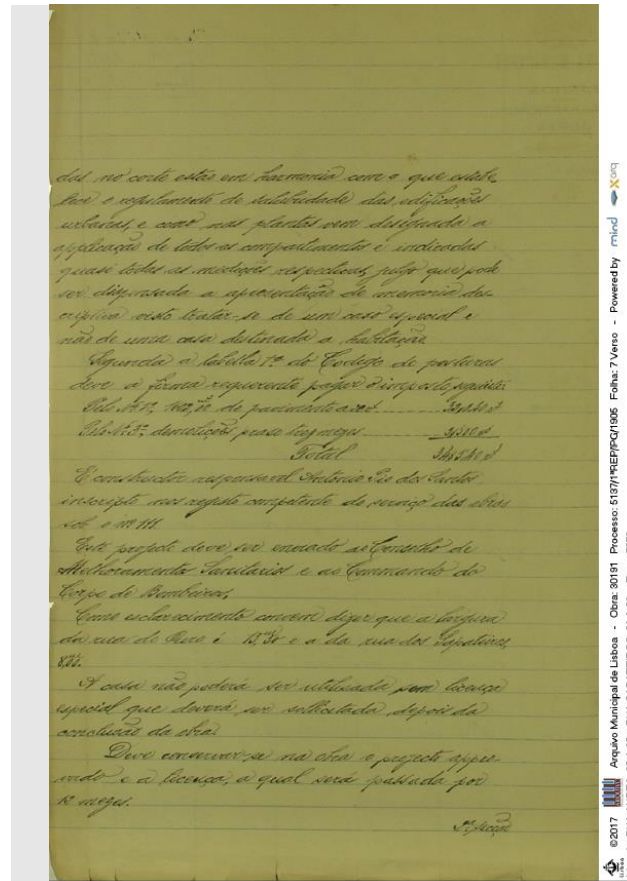 das no corte estão em harmonia com o que estabe-
lece o regulamento de salubridade das edificações
urbanas, e como nas plantas vem designada a
applicação de todos os compartimentos e indicadas
quasi todas as medições respectivas, julgo que pode
ser dispensada a apresentação de memoria des-
criptiva visto tratar-se de um caso especial e
não de uma casa destinada a habitação.
Segundo a tabella 1ª do Codigo de posturas
deve a firma requerente pagar o imposto seguinte:
Pelo Nº 1º, de pavimento a
Pelo Nº 3º, demolições praso tres mezes
Total
É constructor responsavel Antonio dos Santos
inscripto no registo competente do serviço das obras
sob o nº 111
Este projecto deve ser enviado ao Conselho de
Melhoramentos Sanitarios e ao Commando do
Corpo de Bombeiros.
Como esclarecimento convem dizer que a largura
da rua do Ouro é e a da rua dos Sapateiros,
A casa não poderá ser utilisada sem licença
especial que deverá ser sollicitada depois da
conclusão da obra.
Deve conservar-se na obra o projecto appro-
vado e a licença, a qual será passada por
12 mezes.
©2017 Arquivo Municipal de Lisboa - Obra: 30191 Processo: 5137/1ªREP/PG/1905 Folha: 7 Verso - Powered by mind